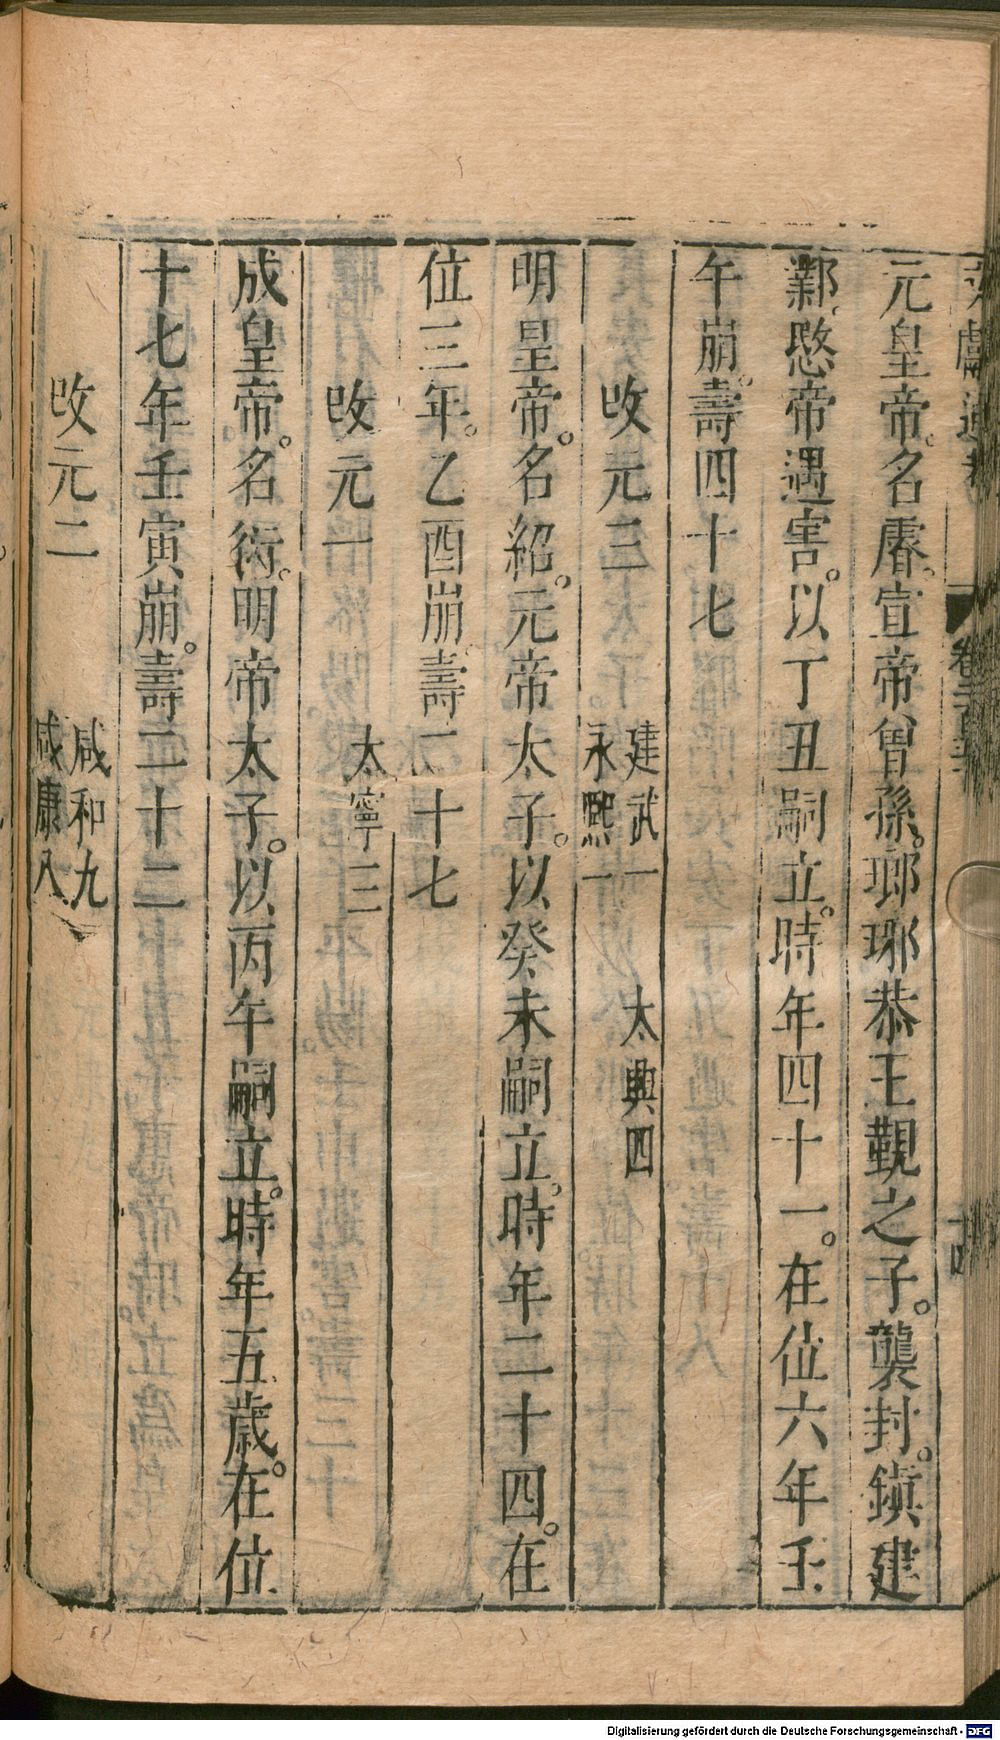 元皇帝。名睿。宣帝曾孫。瑯琊恭王覲之子。襲封。鎮建
鄴。愍帝遇害。以丁丑嗣立。時年四十一。在位六年壬
午崩。壽四十七
改元三 建武一 太興四
永熙一
明皇帝。名紹。元帝太子。以癸未嗣立。時年二十四。在
位三年。乙酉崩。壽二十七
改元一 太寧三
成皇帝。名衍。明帝太子。以丙午嗣立。時年五歲。在位
十七年壬寅崩。壽二十二
改元二 咸和九
咸康八
Digitalisierung gefördert durch die Deutsche Forschungsgemeinschaft - DFG